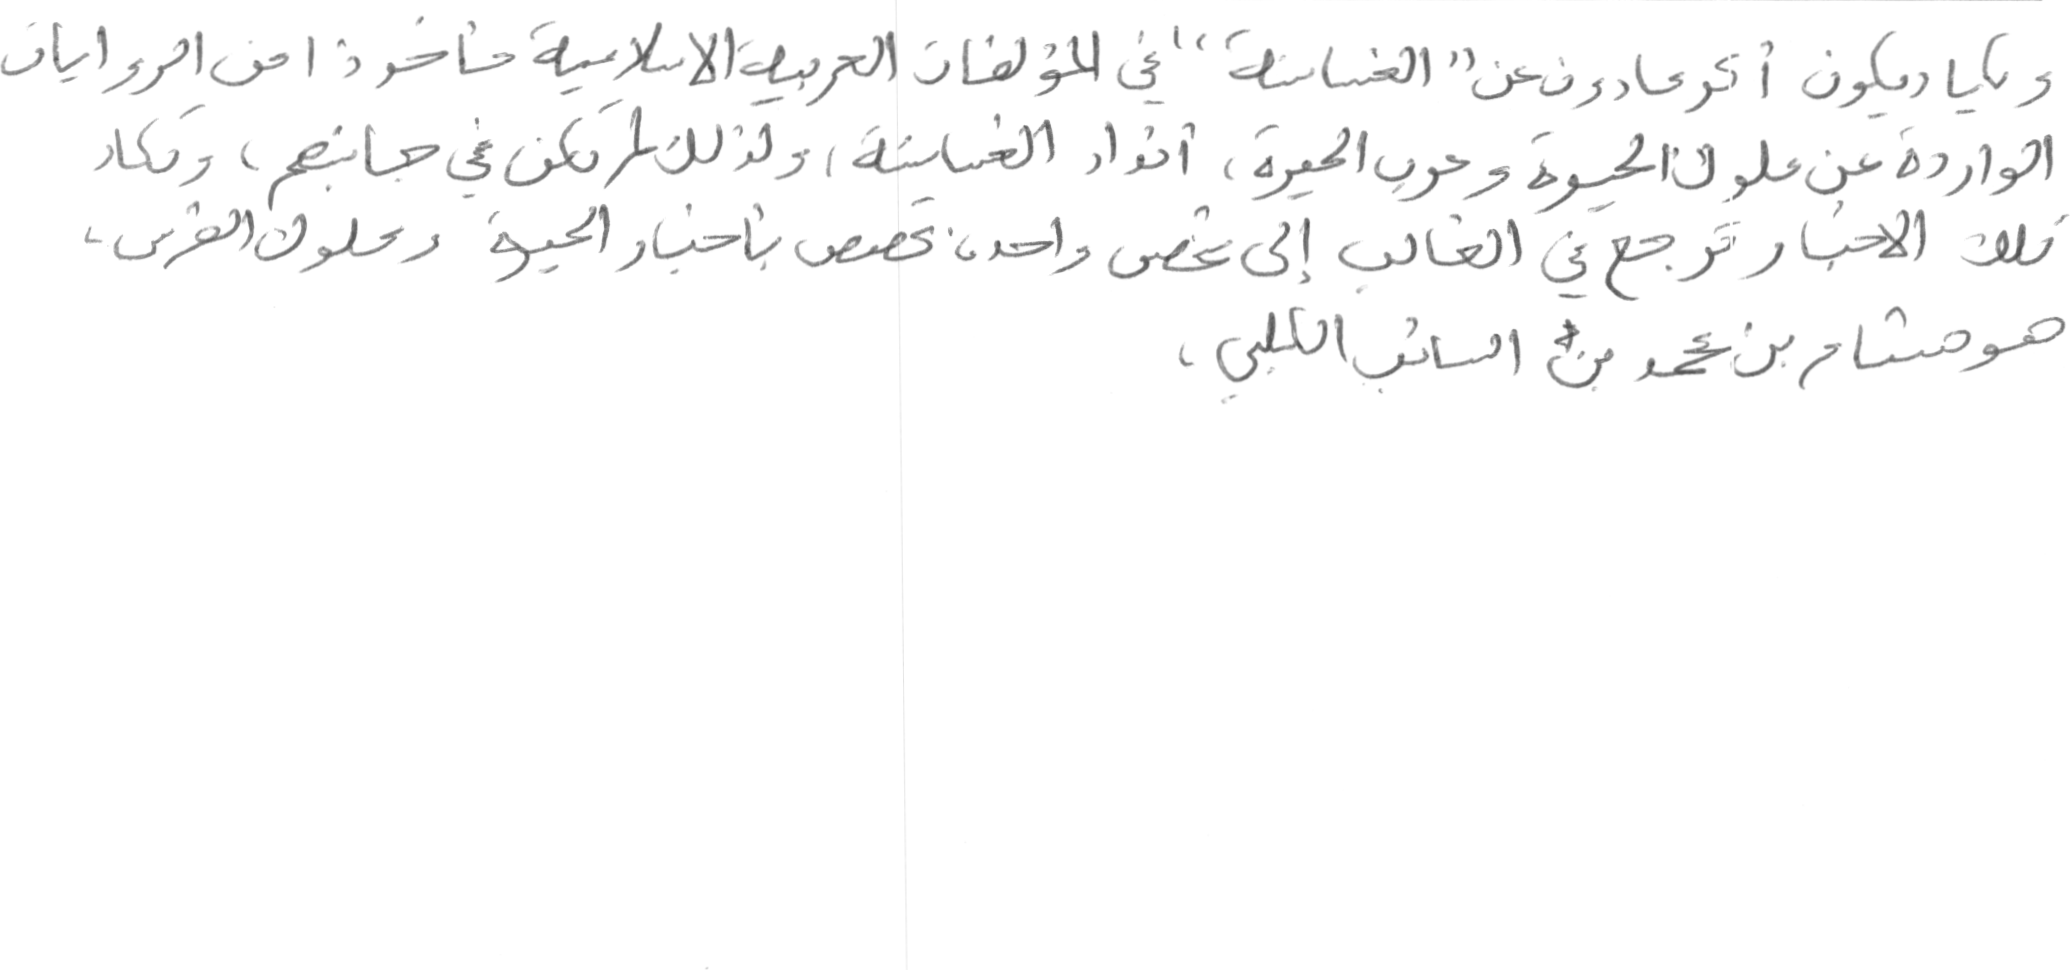 ويكاد يكون أكثر مادون عن "الغساسنة" في المؤلفات العربية الاسلامية مأخوذا من الروايات
الواردة عن ملوك الحيرة وعرب الحيرة، أنداد الغساسنة، ولذلك لم تكن في جانبهم، وتكاد
تلك الاخبار ترجع في الغالب إلى شخص واحد، تخصص بأخبار الحيرة وملوك الفرس،
هو هشام بن محمد بن السائب الكلبي،